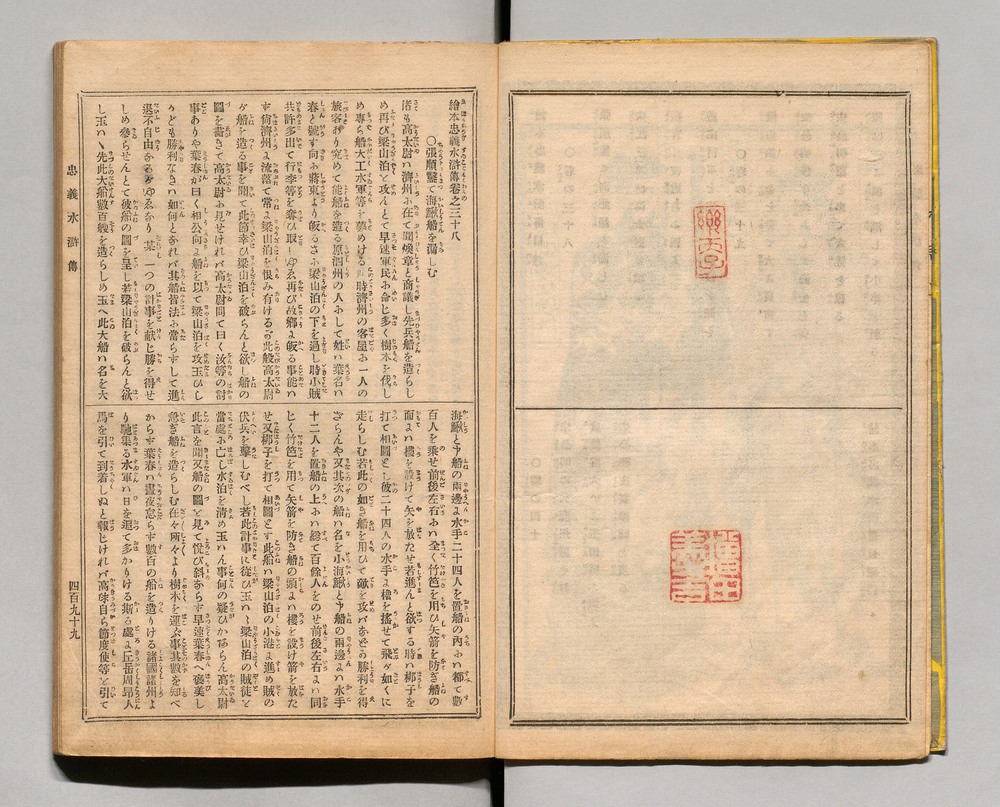 繪本忠義水滸傳卷之三十八
〇張順鑿て海鰍船を漏しむ
偖も高太尉ハ濟州に在て聞煥章と商議し先兵船を造らし
め再び梁山泊を攻んとて早速軍民に命じ多く樹木を伐し
め專ら船大工水軍等を募めける
旅客あり究めて能船を造る原泗州の人にして姓ハ葉名ハ
春と號す向に濟東より皈るさに梁山泊の下を過し時小賊
共許多出て行李等を奪ひ取しゆゑ再び故鄕に皈る事能ハ
ず尙濟州に流落て常に梁山泊を恨み有けるが此般高太尉
が船を造る事を聞て此節幸ひ梁山泊を破らんと欲し船の
圖を畫きて高太尉に見せけれバ高太尉問て曰く汝等の討
事ありや葉春が曰く相公向に船を以て梁山泊を攻玉ひし
かども勝利なきハ如何となれバ其船皆法に當らずして進
退不自由なるゆゑなり某一つの計事を獻じ勝を得せ
しめ參らせんとて彼船の圖を呈し若梁山泊を破らんと欲
し玉ハヾ先此大船數百艘を造らしめ玉へ此大船ハ名を大
海鰍と申船の兩邊に水手二十四人を置船の內にハ都て數
百人を乘せ前後左右にハ全く竹笆を用ひ矢箭を防ぎ船の
面にハ樓を設けて矢を放たせ若進んと欲する時ハ梆子を
打て相圖とし彼二十四人の水手に櫓を搖せて飛が如くに
走らしむ若此の如き船を用ひて敵を攻バなどか勝利を得
ざらんや又其次の船ハ名を小海鰍と申船の兩邊にハ水手
十二人を置船の上にハ總て百餘人をのせ前後左右にハ同
じく竹笆を用て矢箭を防ぎ船の頭にハ樓を設け箭を放た
せ又梆子を打て相圖とす此船ハ梁山泊の小港に進め賊の
伏兵を擊しむべし若此計事に從ひ玉ハヾ梁山泊の賊徒を
當處に亡し水泊を淸め玉ハん事何の疑ひかあらん高太尉
此言を聞又船の圖を見て悅び斜ならず早速葉春へ褒美し
急ぎ船を造らしむ在々所々より樹木を運ぶ事其數を知べ
からず葉春ハ晝夜怠らず數百の船を造りける諸國諸州よ
り馳集る水軍ハ日を追て多かりける斯る處に丘岳周昂人
馬を引て到着しぬと報じけれバ高俅自ら節度使等を引て
忠義水滸傳
四百九十九